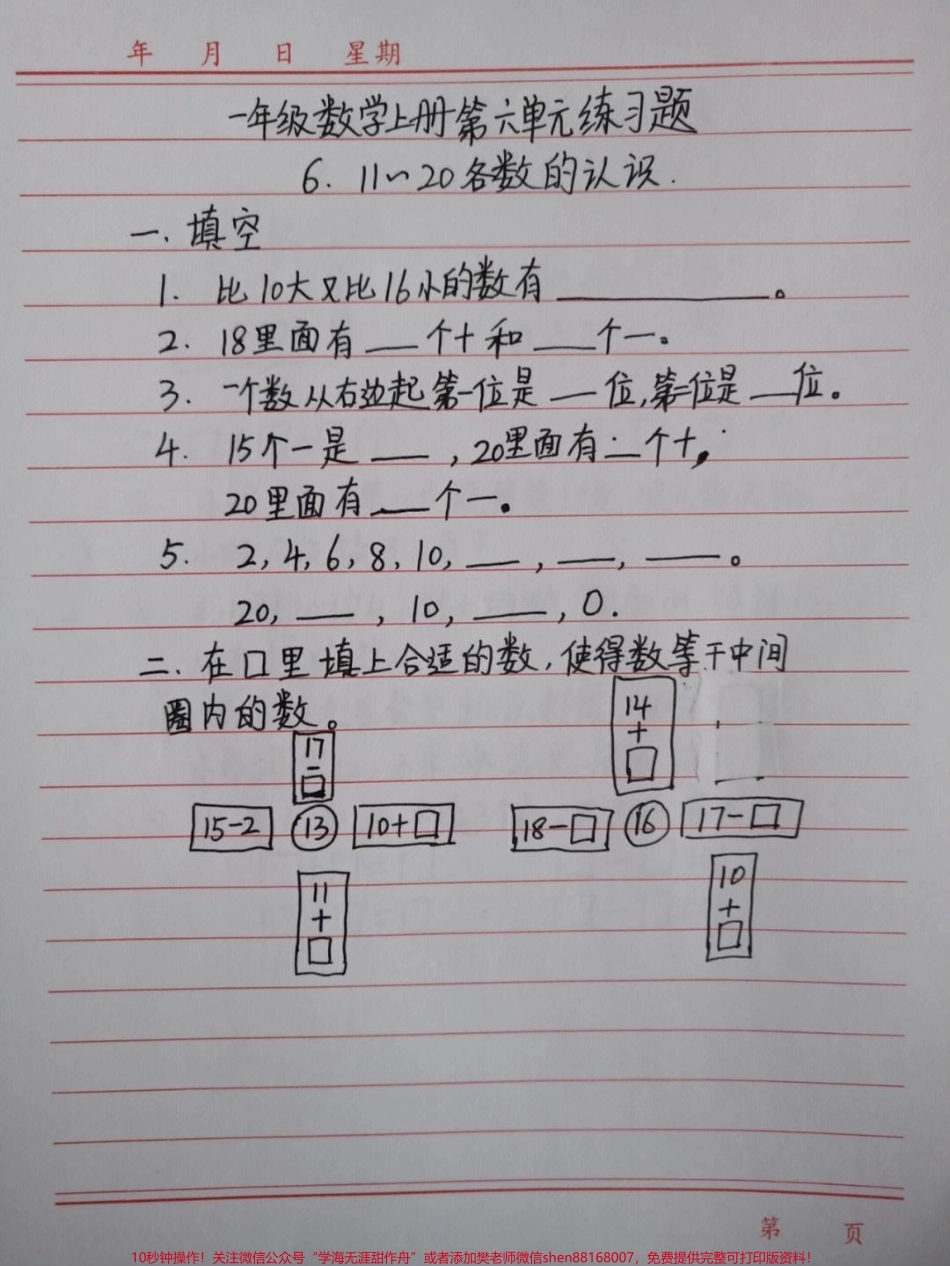 年 月 日 星期
一年级数学上册第六单元练习题
6. 11~20各数的认识.
一. 填空
1. 比10大又比16小的数有__________。
2. 18里面有___个十和___个一。
3. 一个数从右边起第一位是___位,第二位是___位。
4. 15个一是___,20里面有__个十,
20里面有___个一。
5. 2,4,6,8,10,___,___,____。
20,___,10,____,0.
二.在口里填上合适的数,使得数等于中间
圈内的数。
14
+
□
17
-
□
15-2 13 10+□ 18-□ 16 17-□
11
+
□
10
+
□
第 页
10秒钟操作!关注微信公众号“学海无涯甜作舟”或者添加樊老师微信shen88168007,免费提供完整可打印版资料!